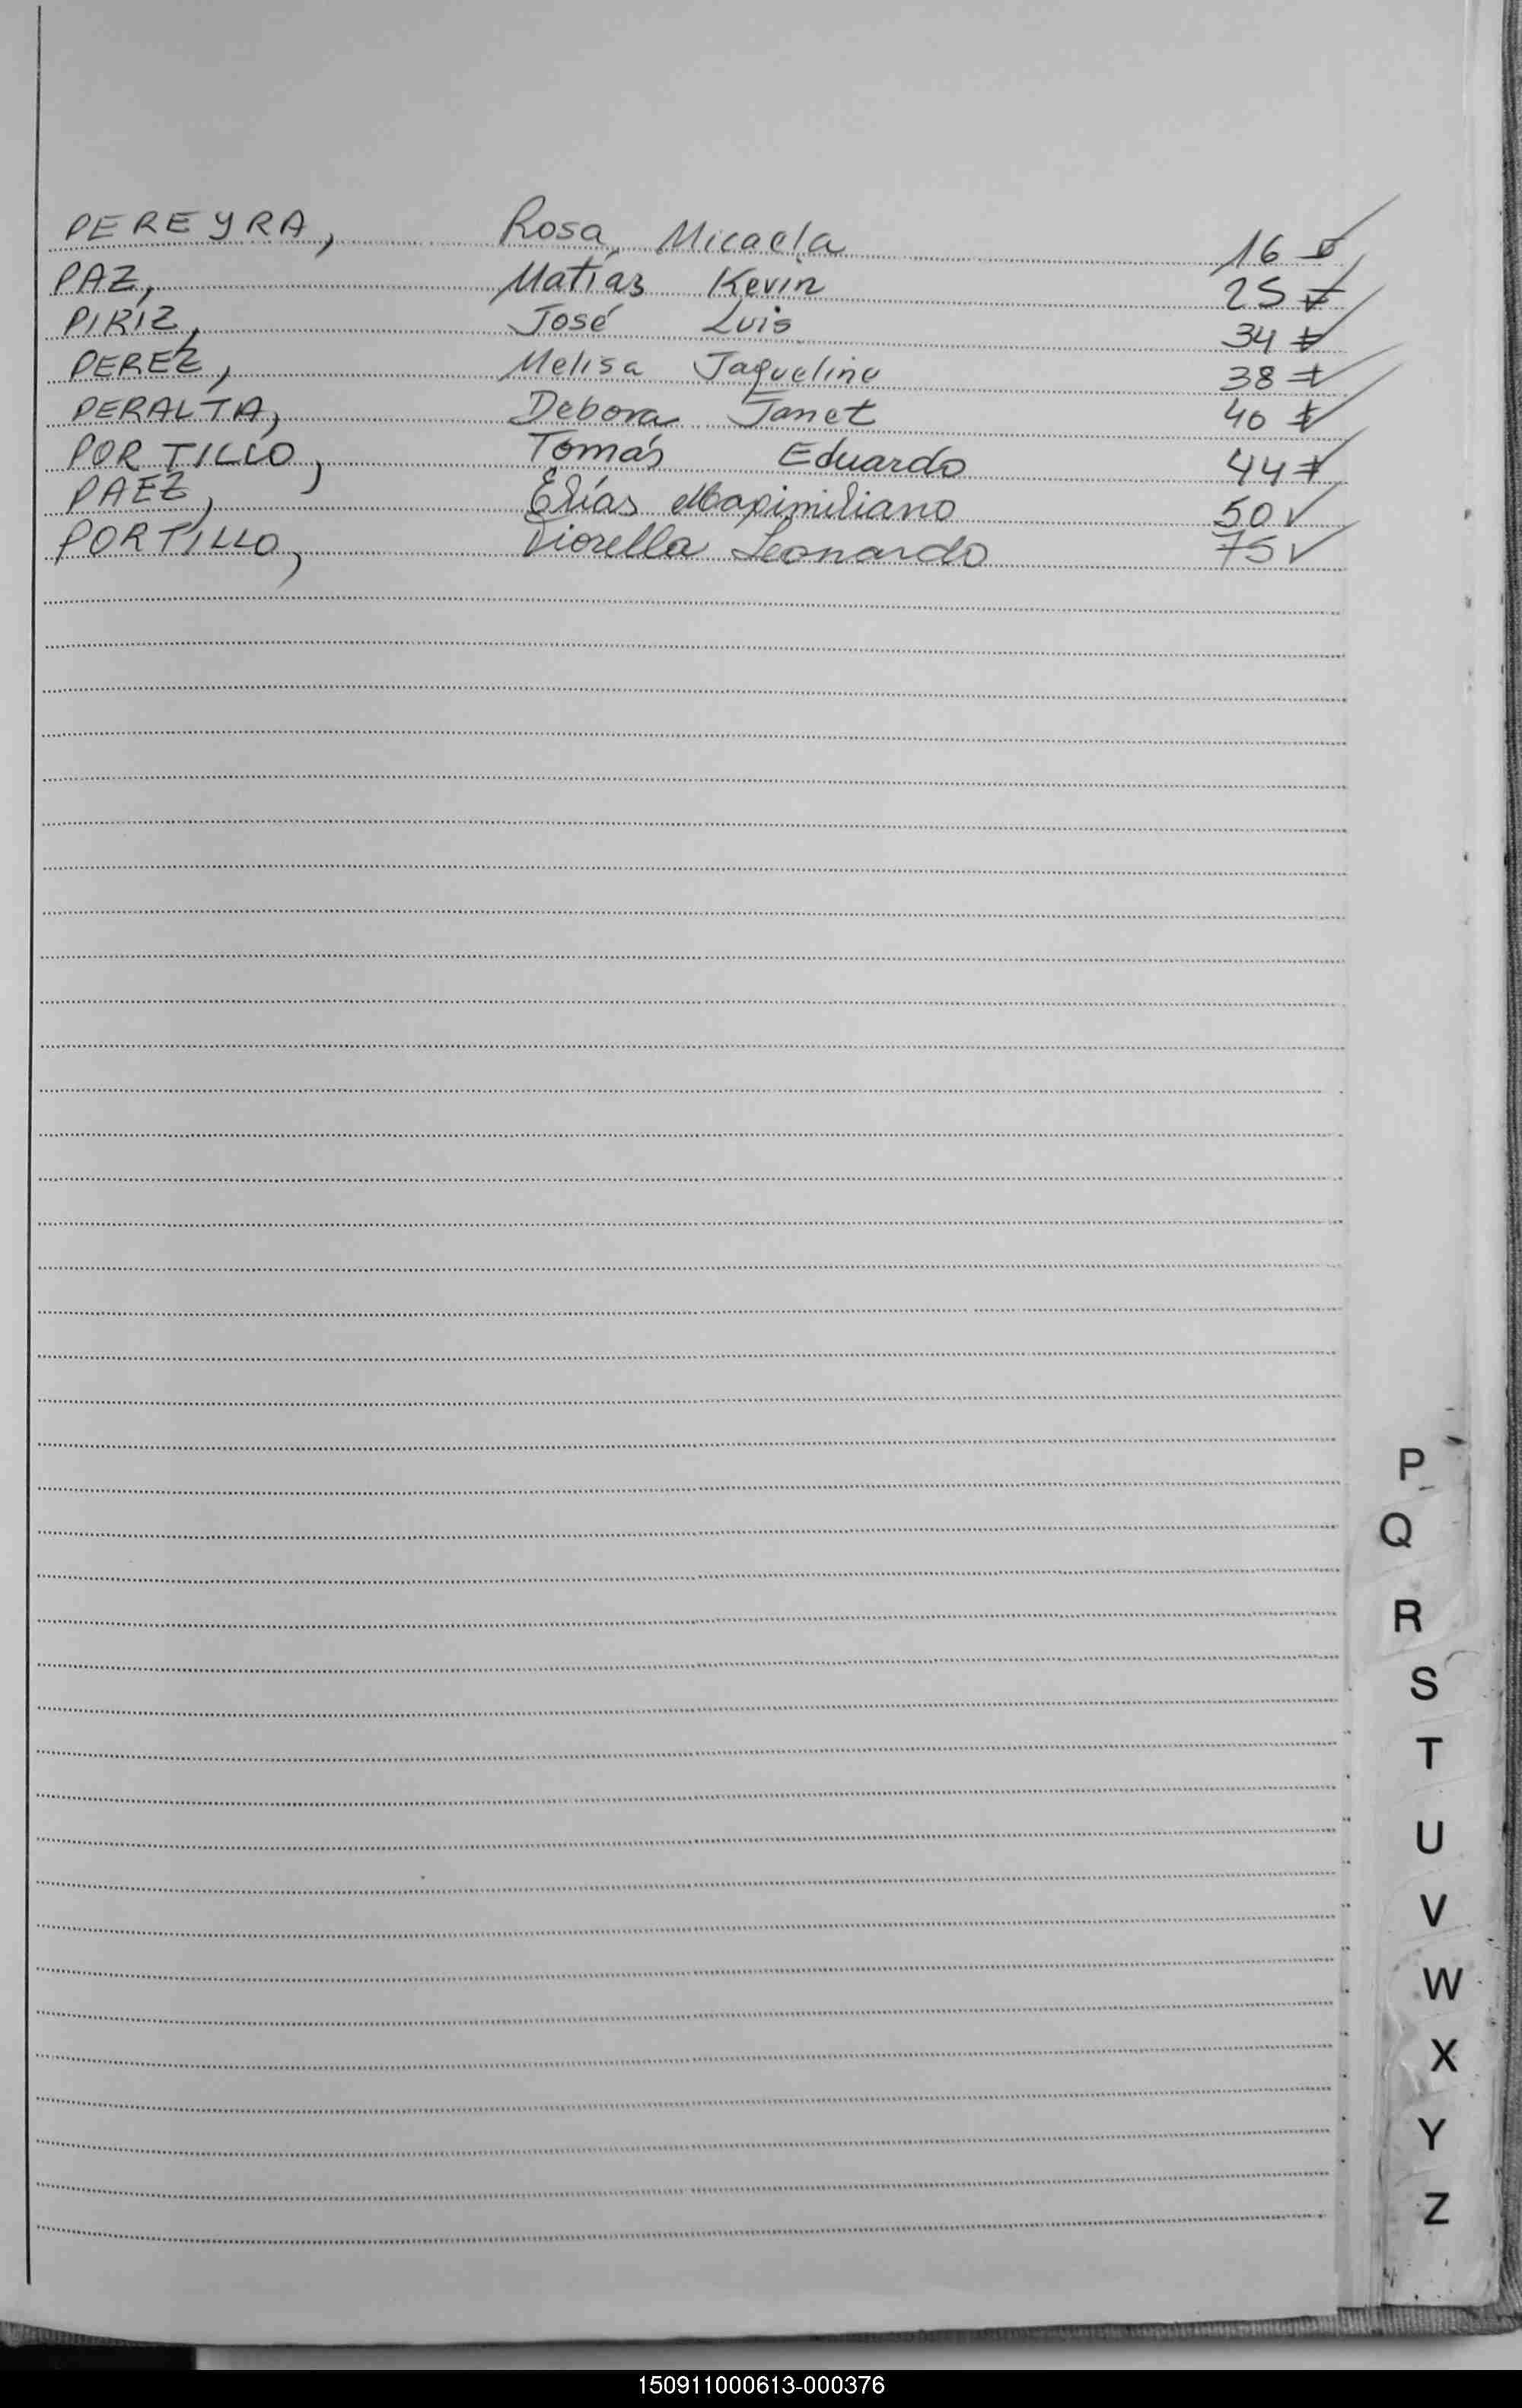 PEREYRA, Rosa Micaela 16
PAZ, Matías Kevin 25
PIRIZ, José Luis 34
PEREZ, Melisa Jaqueline 38
PERALTA, Debora Janet 40
PORTILLO, Tomás Eduardo 44
PAEZ, Elías Maximiliano 50 ✓
PORTILLO, Fiorella Leonardo 75 ✓
P
Q
R
S
T
U
V
W
X
Y
Z
150911000613-000376